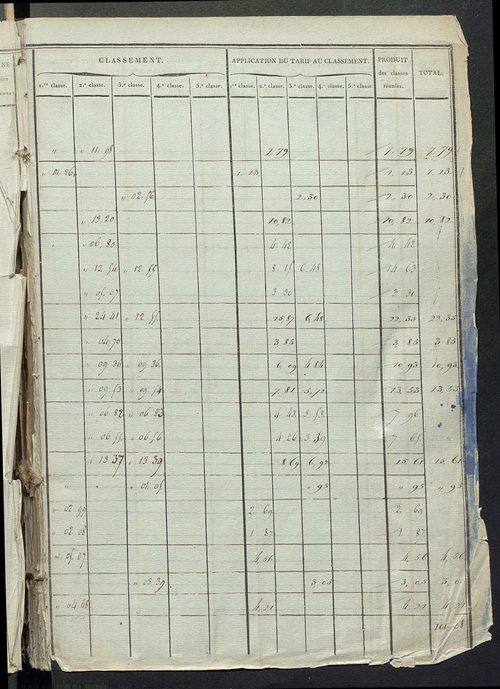 CLASSEMENT. APPLICATION DU TARIF AU CLASSEMENT. PRODUIT des classes réunies. TOTAL.
1.re classe. 2.e classe. 3.e classe. 4.e classe. 5.e classe. 1.re classe. 2.e classe. 3.e classe. 4.e classe. 5.e classe
" " 11. 98 7. 79 7. 79 7. 79
" 01. 26 1. 13 1. 13 1. 13
" 02. 56 2. 30 2. 30 2. 30
" 13. 20 10. 82 10. 82 10. 82
" 06. 82 4. 42 4. 42
" 12. 54 " 12. 55 8. 15 6. 48 14. 63
" 05. 07 3. 30 3. 30
" 24. 41 " 12. 55 15. 87 6. 48 22. 35 22. 35
" 04. 70 3. 85 3. 85 3. 85
" 09. 36 " 09. 36 6. 09 4. 84 10. 93 10. 93
" 09. 53 " 09. 54 7. 81 5. 72 13. 53 13. 53
" 06. 82 " 06. 83 4. 43 3. 53 7. 96
" 06. 55 " 06. 56 4. 26 3. 39 7. 65
" 13. 37 " 13. 39 8. 69 6. 92 15. 61 15. 61
" " " 01. 05 " 95 " 95 " 95
" 02. 99 2. 69 2. 69
" 02. 08 1. 87 1. 87
" 05. 07 4. 56 4. 56 4. 56
" 03. 39 3. 05 3. 05 3. 05
" 04. 68 4. 21 4. 21